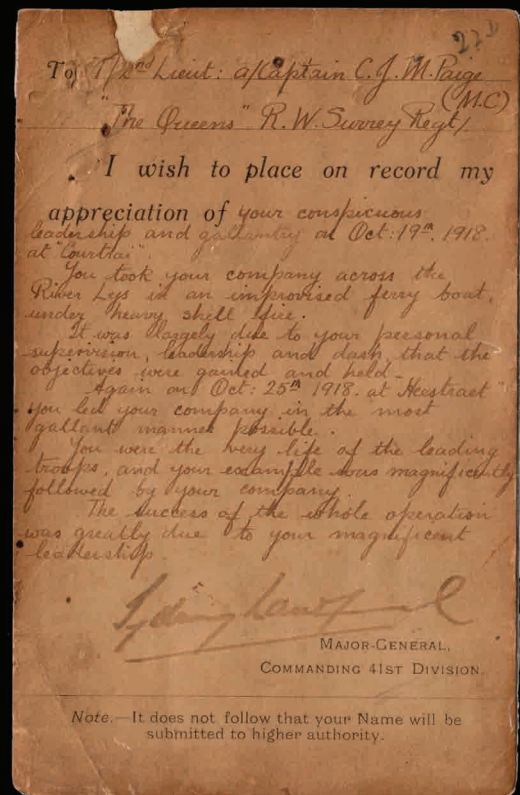 27
To T/2nd Lieut: a/Captain C. J. M. Paige
(M.C)
"The Queens" R. W. Surrey Regt/
I wish to place on record my
appreciation of your conspicuous
leadership and gallantry on Oct: 19th. 1918.
at "Courtrai".
You took your company across the
River Lys in an improvised ferry boat,
under heavy shell fire.
It was largely due to your personal
supervision, leadership and dash, that the
objectives were gained and held—
Again on Oct: 25th 1918. at "Heestraet"
you led your company in the most
gallant manner possible.
You were the very life of the leading
troops, and your example was magnificently
followed by your company.
The success of the whole operation
was greatly due to your magnificent
leadership.
Sydney Lawford
MAJOR-GENERAL,
COMMANDING 41ST DIVISION.
Note.—It does not follow that your Name will be
submitted to higher authority.